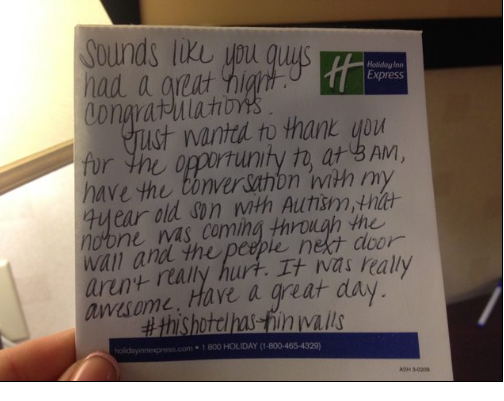 Sounds like you guys
had a great night.
Congratulations.
Holiday Inn
Express
Just wanted to thank you
for the opportunity to, at 3 AM,
have the conversation with my
4 year old son with Autism, that
noone was coming through the
wall and the people next door
aren't really hurt. It was really
awesome. Have a great day.
#thishotelhasthinwalls
holidayinnexpress.com • 1 800 HOLIDAY (1-800-465-4329)
ASH 5-0209